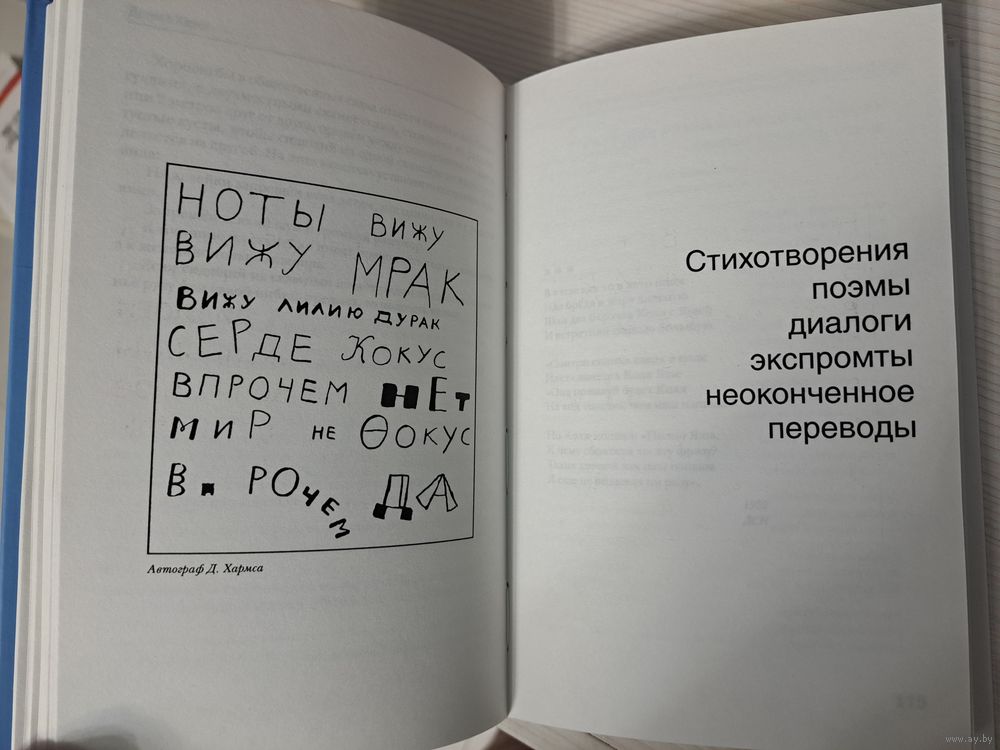 НОТЫ ВИЖУ
ВИЖУ МРАК
ВИЖУ ЛИЛИЮ ДУРАК
СЕРДЕ КОКУС
ВПРОЧЕМ НЕТ
МИР НЕ ѲОКУС
В. РОЧЕМ ДА
Автограф Д. Хармса
Стихотворения
поэмы
диалоги
экспромты
неоконченное
переводы
www.ay.by